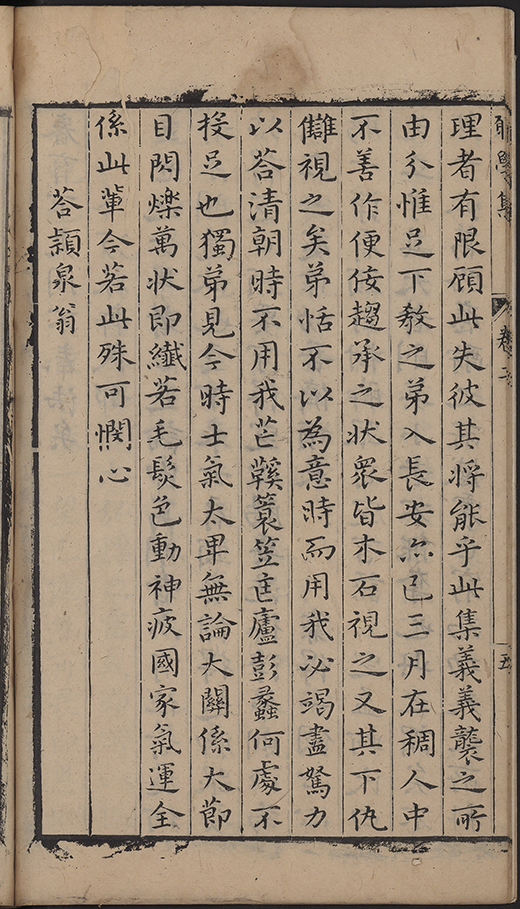 聚學集 卷之 五
理者有限顧此失彼其將能乎此集義義襲之所
由分惟足下教之弟入長安亦已三月在稠人中
不善作便佞趨承之状衆皆木石視之又其下仇
讎視之矣弟恬不以為意時而用我必竭盡駑力
以荅清朝時不用我芒鞵蓑笠匡廬彭蠡何處不
投足也獨弟見今時士氣太卑無論大關係大節
目閃爍萬状即纖若毛髮色動神疲國家氣運全
係此輩今若此殊可憫心
荅頴泉翁